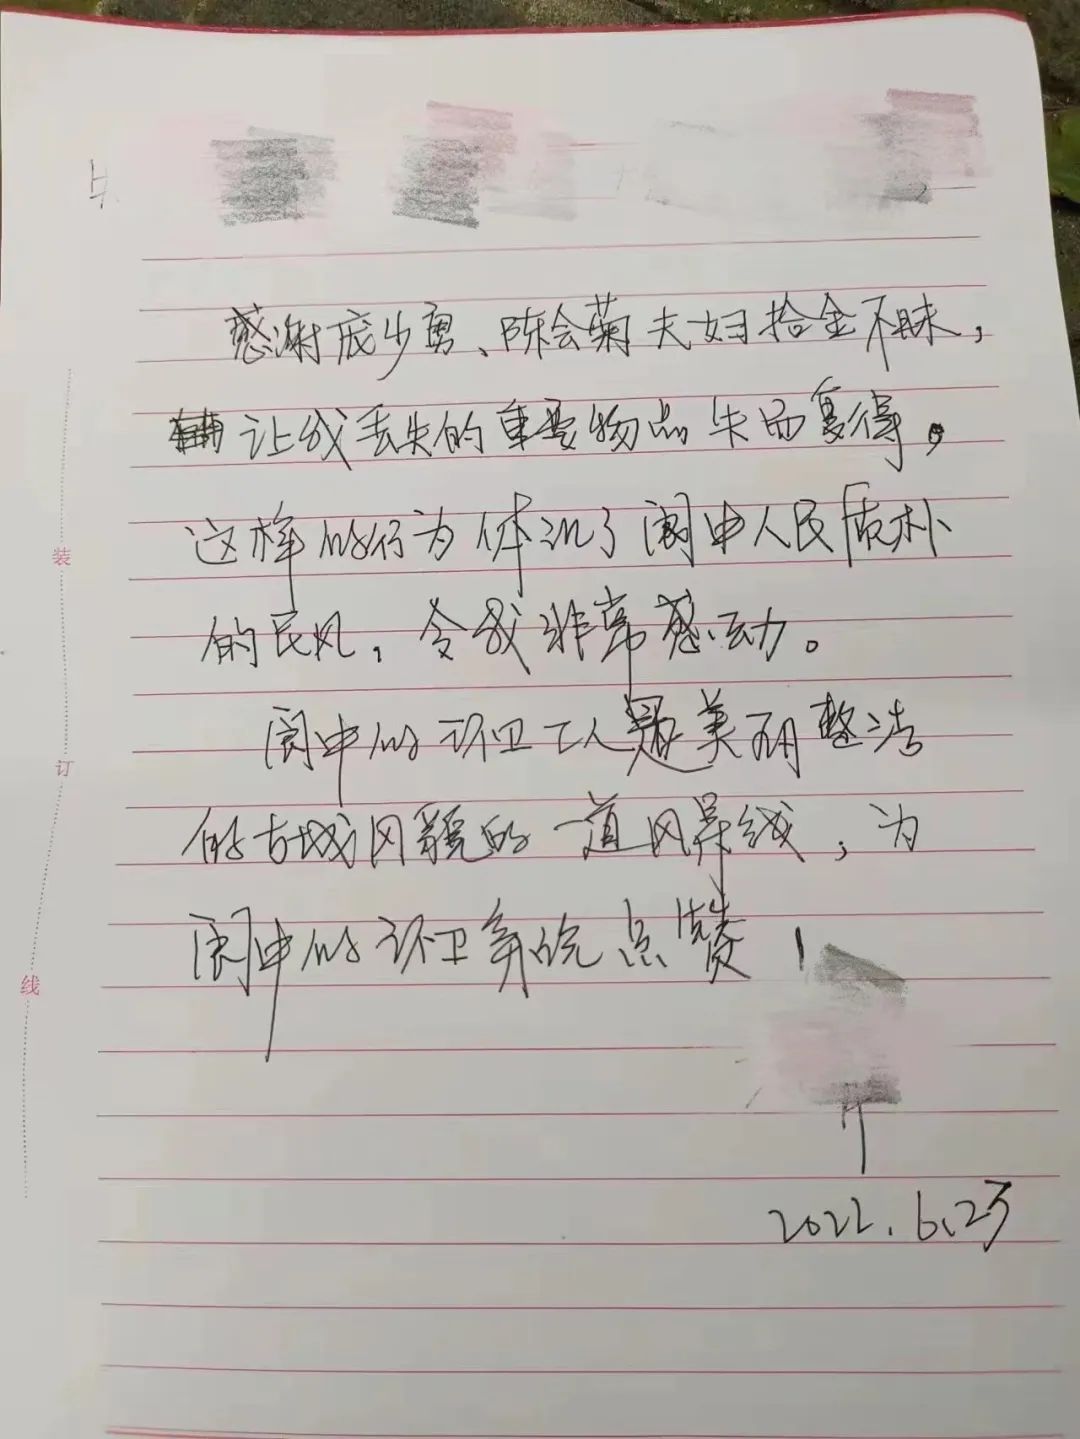 感谢庞少勇、陈会菊夫妇拾金不昧，
让我丢失的重要物品失而复得，
这样的行为体现了阆中人民质朴
的民风，令我非常感动。
阆中的环卫工人是美丽整洁
的古城风貌的一道风景线，为
阆中的环卫系统点赞！
2022.6.23
装
订
线